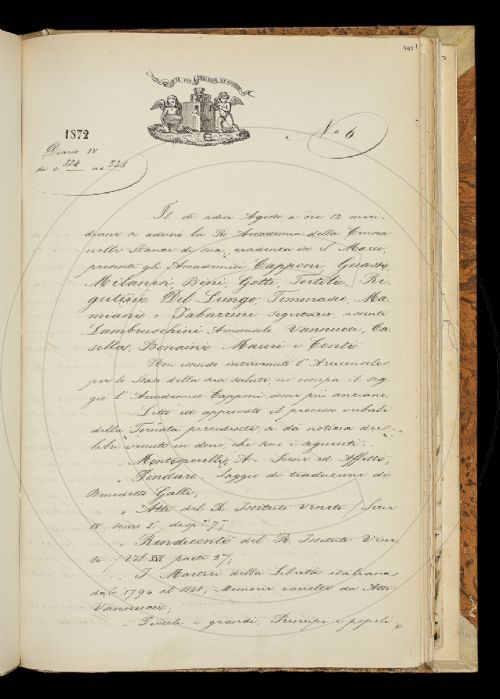 1872
Diario IV
da c. 324 a c. 328
N.° 6
Il dì Agosto a ore 12 meri-
diane si adunò la R. Accademia della Crusca
nelle Stanze di sua residenza in S. Marco,
presenti gli Accademici Capponi, Guasti,
Milanesi, Bini, Gotti, Tortoli, Ri-
gutini, Del Lungo, Tommaseo, Ma-
miani e Tabarrini Segretario, assenti
Lambruschini Arciconsolo, Vannucci, Ca-
sella, Bonaini, Mauri e Conti.
Non essendo intervenuto l'Arciconsolo
per lo stato della sua salute, ne occupa il seg-
gio l'Accademico Capponi come più anziano.
Letto ed approvato il processo verbale
della Tornata precedente, si dà notizia dei
libri venuti in dono, che sono i seguenti:
Montiperelli, A. Suoni ed Affetti;
Pindaro. Saggio di traduzione di
Benedetto Galli;
Atti del R. Istituto Veneto / Serie
IV, tomo 1.° disp. 7.a/;
Rendiconti del R. Istituto Vene-
to / Vol. XVI parte 3.a/;
I Martiri della Libertà italiana
dal 1794 al 1848; Memorie raccolte da Atto
Vannucci;
Piccoli e grandi, Principi e popoli